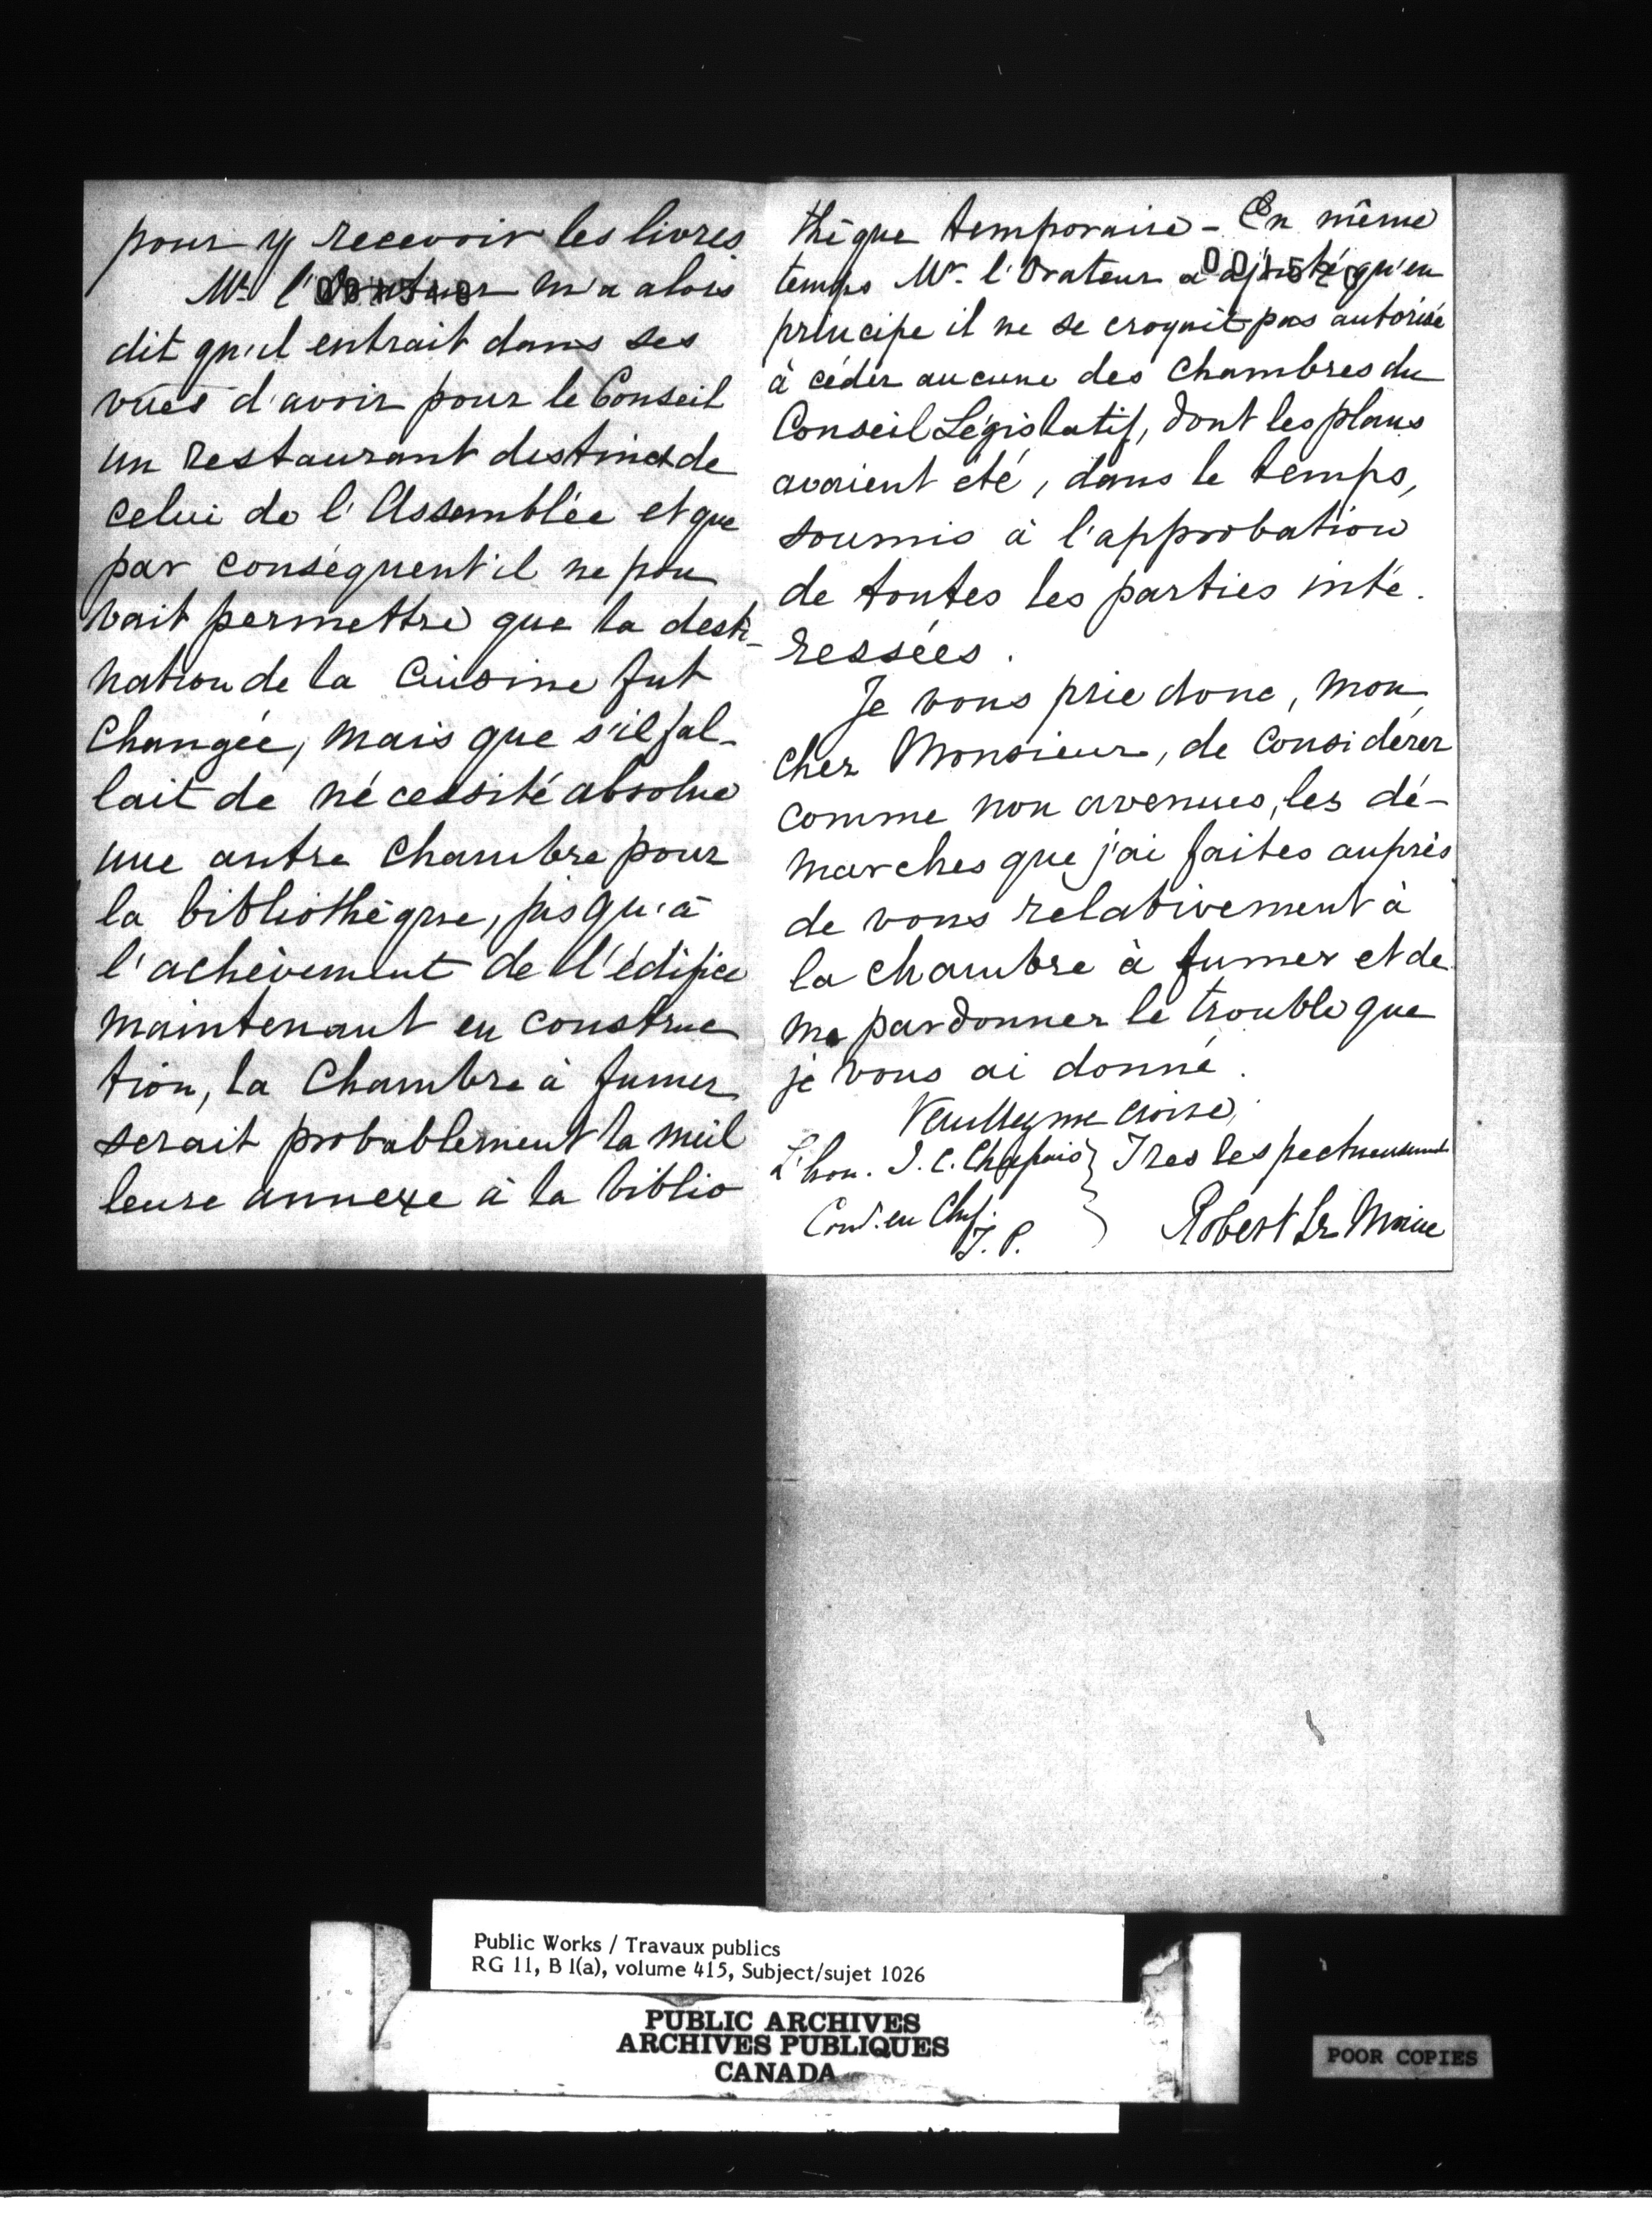 pour y recevoir les livres
Mr. l'Orateur m'a alors
dit qu'il entrait dans ses
vues d'avoir pour le Conseil
un restaurant distinct de
celui de l'Assemblée et que
par conséquent il ne pou
vait permettre que la desti-
nation de la Cuisine fut
changée, mais que s'il fal-
lait de nécessité absolue
une autre chambre pour
la bibliothèque, jusqu'à
l'achèvement de l'édifice
maintenant en construc
tion, la Chambre à fumer
serait probablement la meil
leure annexe à la biblio
thèque temporaire - En même
temps Mr. l'Orateur a ajouté qu'en
principe il ne se croyait pas autorisé
à céder aucune des chambres du
Conseil Législatif, dont les plans
avaient été, dans le temps,
soumis à l'approbation
de toutes les parties inté.
ressées.
Je vous prie donc, mon
cher Monsieur, de considérer
comme non avenues, les dé-
marches que j'ai faites auprès
de vous relativement à
la chambre à fumer et de
me pardonner le trouble que
je vous ai donné.
Veuillez me croire,
L'hon. J. C. Chapais } Très respectueusement
Com. en Chef. Robert Le Moine
T. P.
Public Works / Travaux publics
RG 11, B 1(a), volume 415, Subject/sujet 1026
PUBLIC ARCHIVES
ARCHIVES PUBLIQUES
CANADA
POOR COPIES